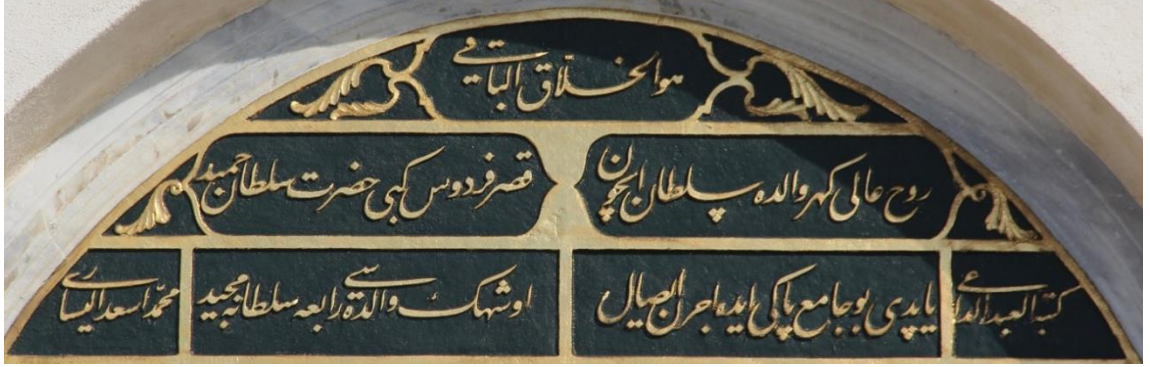 هو الخلاق الباقي
روح عالی کهر والده سلطان ایچون
قصر فردوس کبی حضرت سلطان حمید
کتبه العبد الداعی
یاپدی بو جامع پاکی ایده اجرن ایصال
اوشهك والده سی رابعه سلطانه مجید
محمد اسعد الیساری